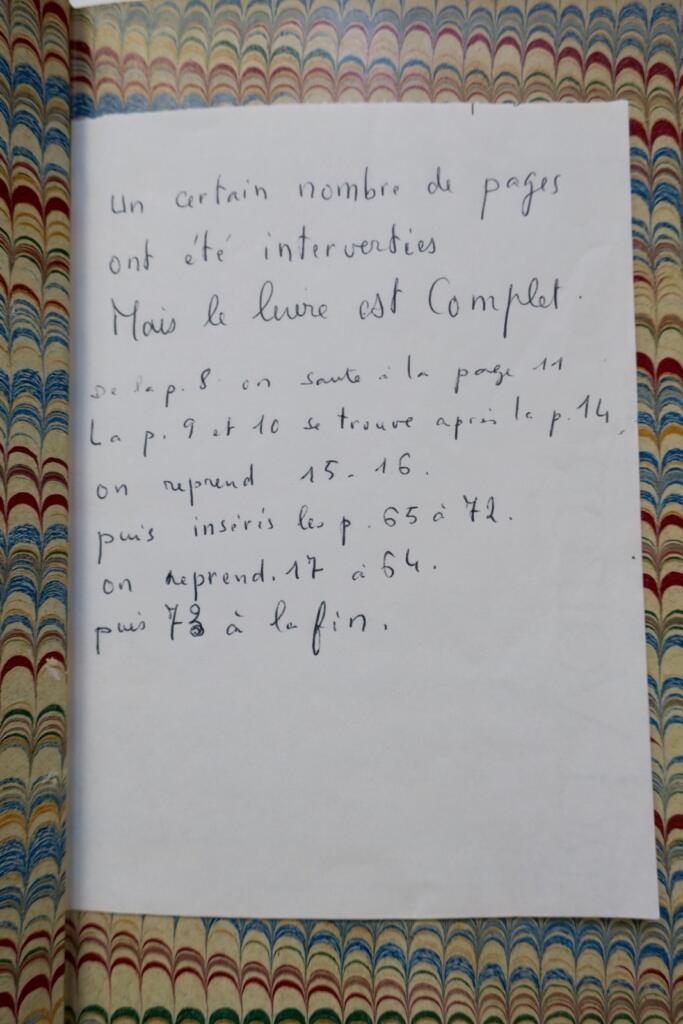 Un certain nombre de pages
ont été interverties
Mais le livre est Complet.
De la p. 8 on saute à la page 11
La p. 9 et 10 se trouve après la p. 14,
on reprend 15-16.
puis insérés les p. 65 à 72.
on reprend. 17 à 64.
puis 73 à la fin.